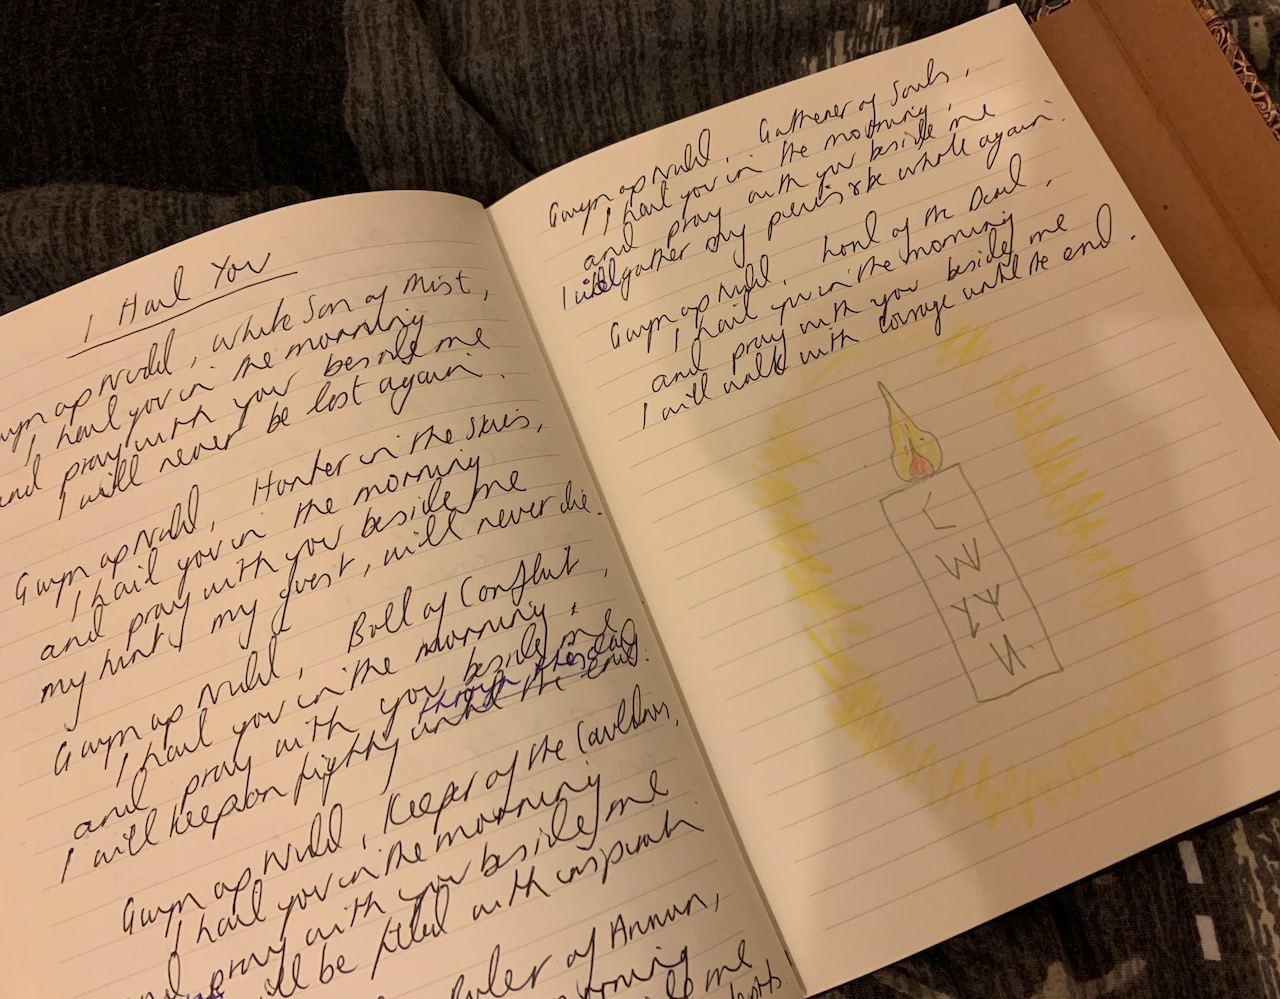 I Hail You
wyn ap Nudd, White Son of Mist,
I hail you in the morning
and pray with you beside me
I will never be lost again.
Gwyn ap Nudd, Hunter in the Skies,
I hail you in the morning
and pray with you beside me
my hunt, my quest, will never die.
Gwyn ap Nudd, Bull of Conflict,
I hail you in the morning,
and pray with you beside me
through this day
I will keep on fighting until the end.
Gwyn ap Nudd, Keeper of the Cauldron,
I hail you in the morning
and pray with you beside me
will be filled with inspiration.
Ruler of Annwn,
morning
me
Gwyn ap Nudd, Gatherer of Souls,
I hail you in the morning,
and pray with you beside me
I will gather my pieces & be whole again.
Gwyn ap Nudd, Lord of the Dead,
I hail you in the morning
and pray with you beside me
I will walk with courage until the end.
W
Y
N